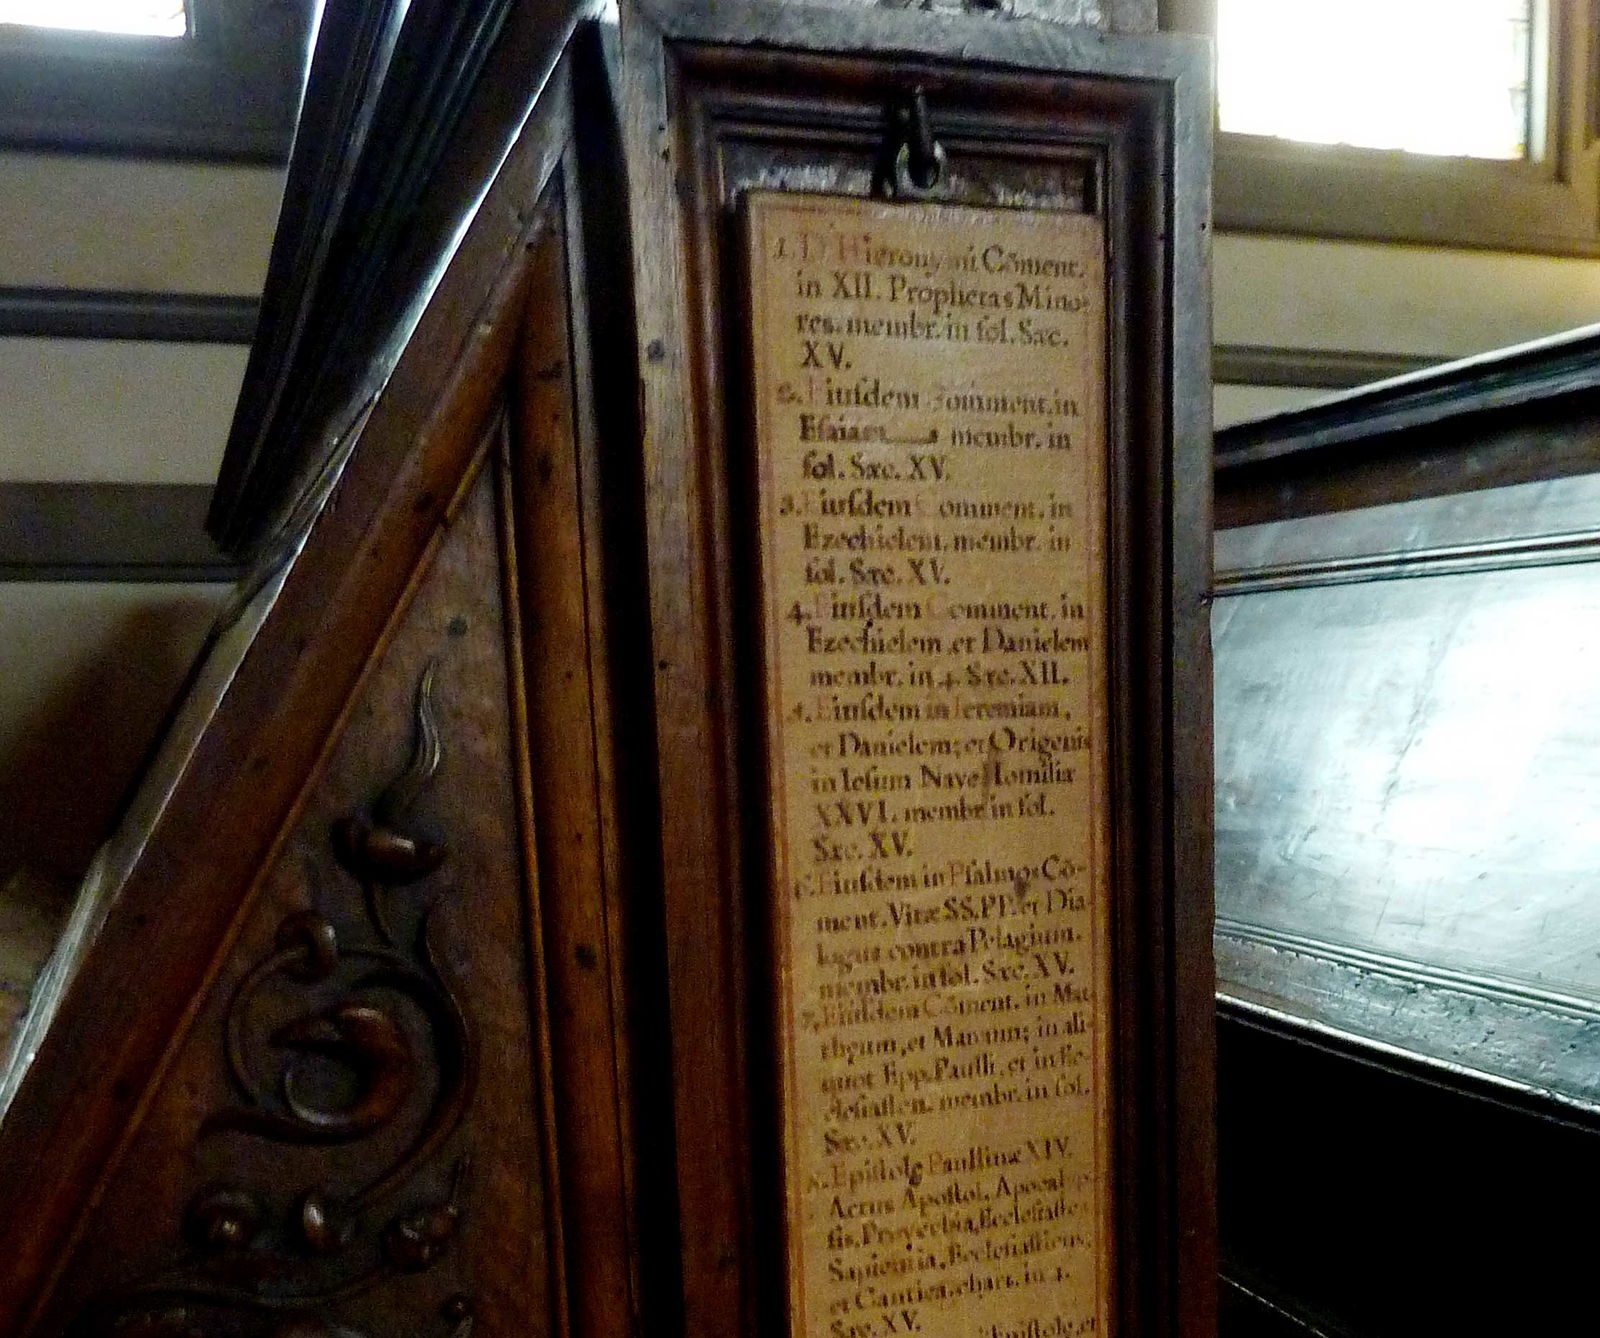 1. D. Hieronymi Cōment.
in XII. Prophetas Mino-
res. membr. in fol. Sæc.
XV.
2. Eiuſdem Comment. in
Eſaiam membr. in
fol. Sæc. XV.
3. Eiuſdem Comment. in
Ezechielem. membr. in
fol. Sæc. XV.
4. Eiuſdem Comment. in
Ezechielem et Danielem
membr. in 4. Sæc. XII.
Eiuſdem in Ieremiam,
et Danielem; et Origenis
in Ieſum Nave Homiliæ
XXVI. membr. in fol.
Sæc. XV.
Eiuſdem in Pſalmos Cō-
ment. Vitæ SS. PP. et Dia-
logus contra Pelagium.
membr. in fol. Sæc. XV.
7. Eiuſdem Cōment. in Mat-
thęum, et Marcum; in ali-
quot Epp. Paulli, et in Ec-
cleſiaſten. membr. in fol.
Sæc. XV.
Epiſtolę Paullinæ XIV.
Actus Apoſtol. Apocalyp-
ſis, Proverbia, Eccleſiaſtes
Sapientia, Eccleſiaſticus,
et Cantica. chart. in 4.
Sæc. XV.
Epiſtolę, et